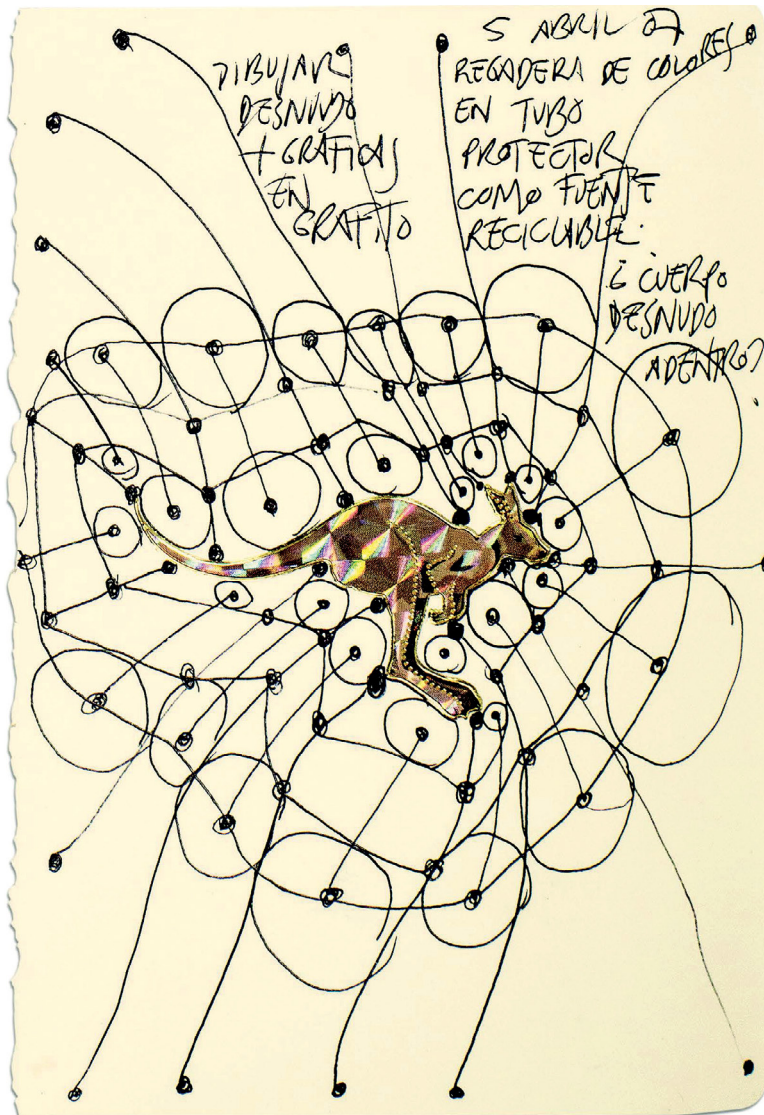 DIBUJAR
DESNUDO
+ GRAFICAS
EN
GRAFITO
5 ABRIL 07
REGADERA DE COLORES
EN TUBO
PROTECTOR
COMO FUENTE
RECICLABLE.
¿ CUERPO
DESNUDO
ADENTRO?